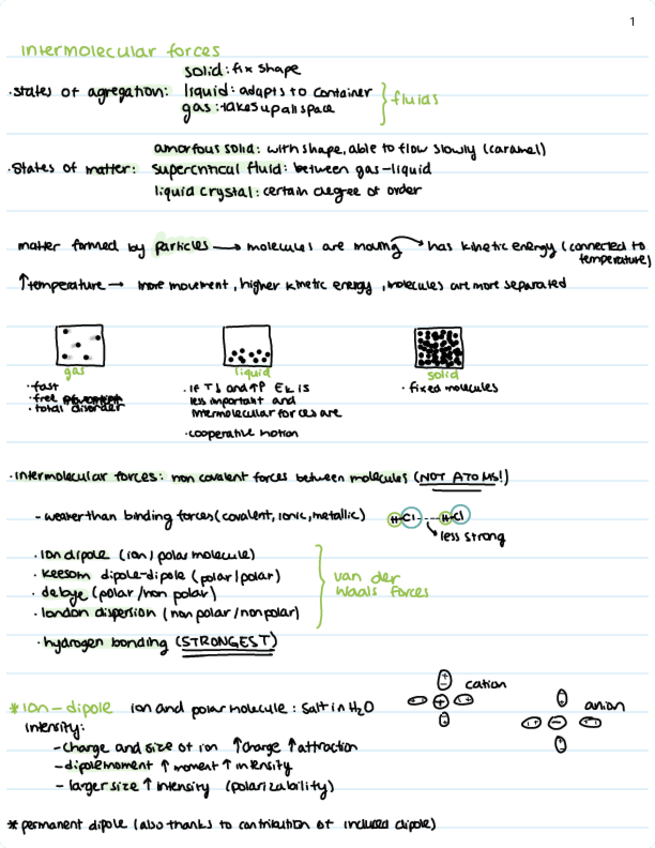 1
intermolecular forces
solid: fix shape
·states of agregation: liquid: adapts to container
gas: takes up all space
fluids
amorfous solid: with shape, able to flow slowly (caramel)
·States of matter: supercritical fluid: between gas-liquid
liquid crystal: certain degree of order
matter formed by particles → molecules are moving → has kinetic energy (connected to
temperature)
↑temperature → more movement, higher kinetic energy, molecules are more separated
gas
·fast
·free
·total disorder
liquid
·If T↓ and ↑P Ek is
less important and
intermolecular forces are
·cooperative motion
solid
·fixed molecules
·intermolecular forces: non covalent forces between molecules (NOT ATOMS!)
-weaker than binding forces (covalent, ionic, metallic)
H-Cl---H-Cl
less strong
·Ion dipole (ion / polar molecule)
·keesom dipole-dipole (polar/polar)
·debye (polar/non polar)
·london dispersion (non polar/nonpolar)
van der
waals forces
·hydrogen bonding (STRONGEST)
*Ion-dipole ion and polar molecule: salt in H₂O
cation
anion
intensity:
-charge and size of ion ↑charge ↑attraction
-dipole moment ↑ moment ↑ intensity
-larger size ↑ intensity (polarizability)
*permanent dipole (also thanks to contribution of included dipole)